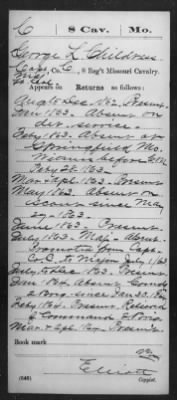 C 8 Cav. Mo.
George L. Childress
Capt, Co. C, 8 Reg't Missouri Cavalry.
Appears on Returns as follows:
Aug to Dec 1862, Present.
Jan 1863. Absent on
det. service.
Feby 1863. Absent at
Springfield Mo.
Witness before G.C.M.
Feby 25 1863.
Mar & Apl 1863. Present
May 1863. Absent on
scout since May
27, 1863.
June 1863. Present.
July 1863. Maj - Absent.
Promoted from Capt.
Co. C. to Major July 1/63
Aug to Dec 1863. Present
Jan 1864. Absent
since Jan 30, 1864
Feby 1864. Present. Relieved
of Command
Mar. & Apl 1864. Present.
Book mark
Elliott
(646) Copyist.